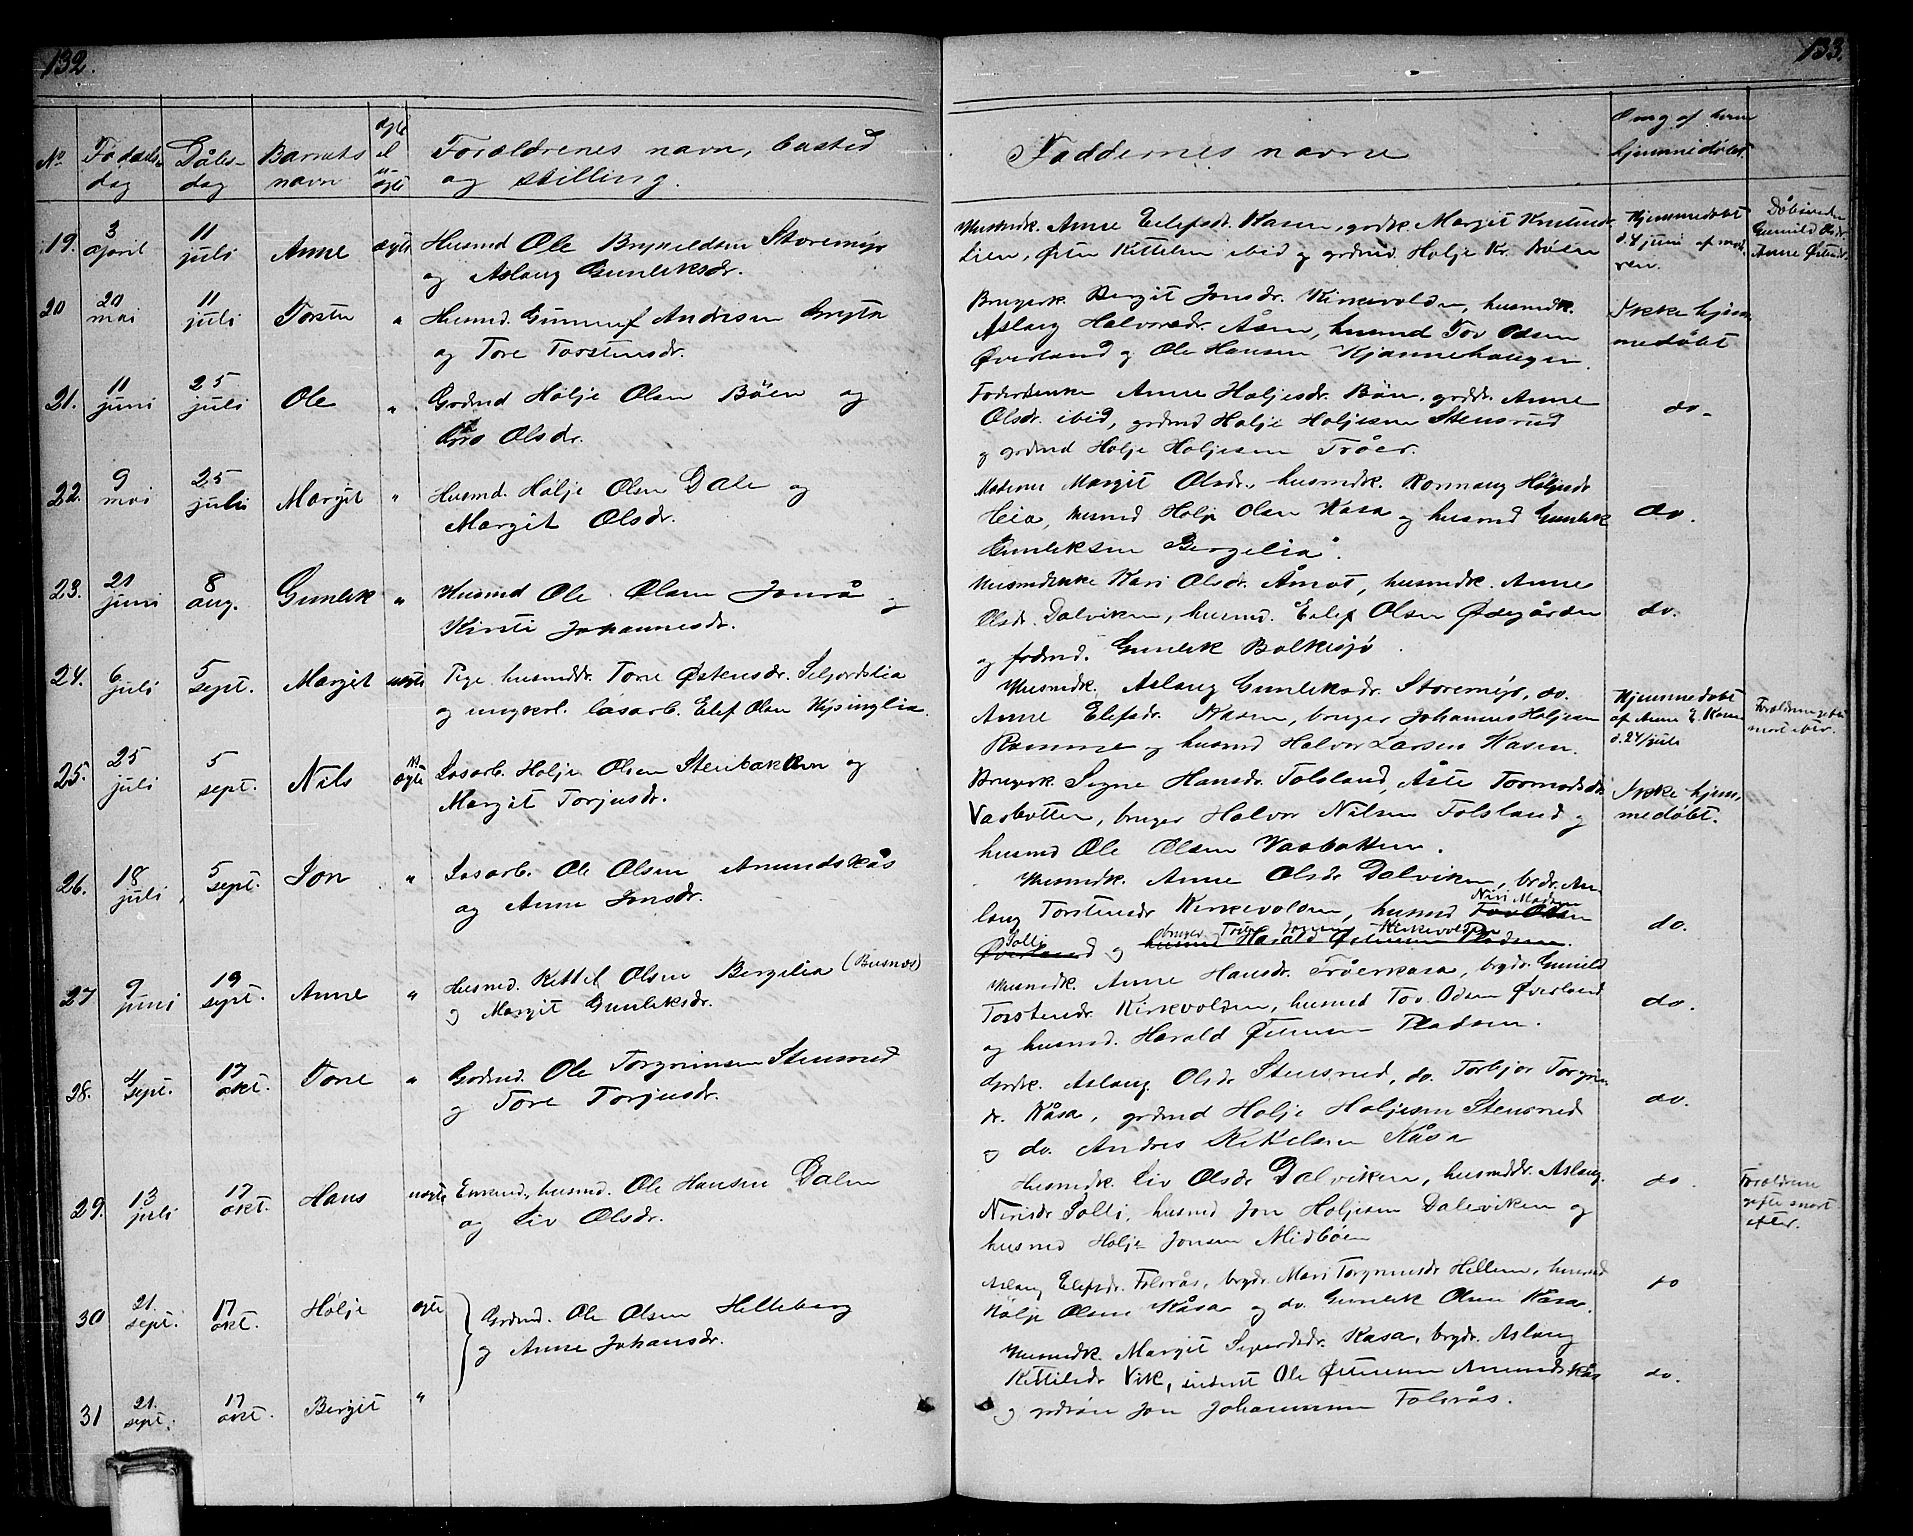 132.
No Fødsels- Dåbs- Barnets ægte Forældrenes navn, bosted
dag dag navn el u- ægte og stilling.
19. 3 april 11 juli Anne ægte Husmd Ole Brynildsen Storemyr
og Aslaug Gunleksdr.
20 20 mai 11 juli Torsten " Husmd. Gunnulf Andersen
og Tore Torstensdr.
21. 11 juni 25 juli Ole " Grdmd Hølje Olsen Böen og
Gro Olsdr.
22. 9 mai 25 juli Margit " Husmd. Hølje Olsen Dale og
Margit Olsdr.
23. 21 juni 8 aug. Gunlek " Husmd Ole Olsen Jonrå og
Kirsti Johannesdr.
24. 6 juli 5 sept. Margit uægte Pige husmddr. Tone Østensdr. Seljordslia
og ungkarl. løsarb. Elef Olsen
25. 25 juli 5 sept. Nils ægte Løsarb. Hølje Olsen Stenbakken og
Margit Torjusdr.
26. 18 juli 5 sept. Jon " Løsarb. Ole Olsen Amundskås
og Anne Jonsdr.
27 9 juni 19 sept. Anne " Husmd. Kettil Olsen Bergelia (Busnæs)
og Margit Gunleksdr.
28. 4 sept. 17 okt. Tone " Grdmd. Ole Torgrimsen Stensrud
og Tore Torjusdr.
29. 13 juli 17 okt. Hans uægte Enkemd., husmd. Ole Hansen Dalen
og Liv Olsdr.
30 21. sept. 17 okt. Hølje ægte Grdmd. Ole Olsen Helleberg
og Anne Johansdr.
31 21. sept. 17 okt. Bergit "
133.
Faddernes navne
Om og af hvem
hjemmedøbt.
Husmdk. Anne Eilefsdr. Kasen, grdk. Margit Knutsdr
Lien, Østen Kittelsen ibid og grdmd. Holje Kr. Böen
Hjemmedøbt
d. 4 juni af mod-
ren.
Gunnild Olsdr.
Anne Østensdr.
Brugerk. Bergit Jonsdr. Kirkevolden, husmdk.
Aslaug Halvorsdr. Åsen, husmd Tov Odsen
Øverland og Ole Hansen Kjønnehaugen
Ikke hjem-
medøbt
Anne Holjesdr. Böen, grddr. Anne
Olsdr. ibid, grdmd Hølje Holjesen Stensrud
og grdmd Hølje Holjesen Tröer.
do.
Moderen Margit Olsdr., husmdk. Rønnaug Höljesdr
Heia, husmd Hølje Olsen Kasa og husmd Gunlek
Gunleksen Bergelia.
do.
Husmdenke Kari Olsdr. Åmot, husmdk. Anne
Olsdr. Dalviken, husmd. Eilef Olsen Ødegården
og Gunlek Bolkesjø.
do.
Husmdk. Aslaug Gunleksdr. Storemyr, do.
Anne Elefsdr. Kasen, bruger Johannes Holjesen
Romme og husmd Halvor Larsen Kasen.
Hjemmedøbt
af Anne E. Kasen
d. 24/juli
Forældrene
Brugerk. Signe Hansdr. Folsland, Åste Tormodsdr
Vasbotten, bruger Halvor Nilsen Folsland og
husmd Ole Olsen Vasbotten.
Ikke hjem-
medøbt.
Husmdk. Anne Olsdr Dalviken, brdr. As-
laug Torstensdr Kirkevolden, husmd Tov Odsen Niri Madsen
Øverland Solli og husmd Harald Østensen Pladsen. bruger Kirkevolden
do.
Husmdk. Anne Hansdr. Tröerkasa, brgdr. Gunild
Torstensdr. Kirkevolden, husmd Tov Odsen Øverland
og husmd. Harald Østensen Pladsen.
do.
Grdk. Aslaug Olsdr Stensrud, do. Torbjør Torgrims-
dr. Kåsa, grdmd Holje Holjesen Stensrud
og do. Andres Kåsa
do.
Husmdk. Liv Olsdr Dalviken, husmddr. Aslaug
Nirisdr Solli, husmd Jon Holjesen Daleviken og
husmd Hølje Jonsen Midbøen
do.
Forældrene
gifte snart
efter.
Aslaug Elefsdr. Folsrås, brgdr. Mari Torgrimsdr Hellem, husmd
Hølje Olsen Kåsa og do. Gunlek Olsen Kasa.
do
Husmdk. Margit Sigurdsdr. Kasa, brgdr. Aslaug
Kittilsdr Vik, Ole Østensen Amundskås
og grdsön Jon Johannesen Folsrås.
do.